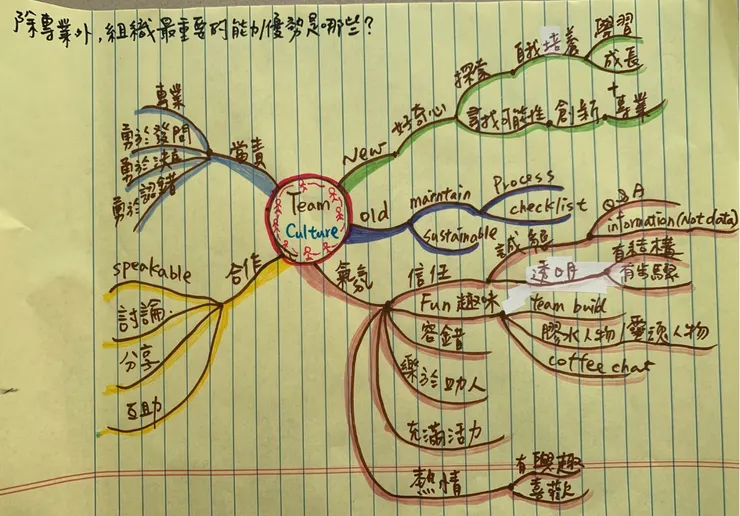 除專業外,組織最重要的能力/優勢是哪些?
Team
Culture
當責
專業
勇於發問
勇於決定
勇於認錯
合作
speakable
討論
分享
互助
New
好奇心
探索
自我培養
學習
成長
尋找可能性
創新
+
專業
old
maintain
process
checklist
sustainable
氣氛
信任
誠懇
Q&A
information(Not data)
透明
有結構
有步驟
Fun 趣味
team build
膠水人物
靈魂人物
coffee chat
容錯
樂於助人
充滿活力
熱情
有興趣
喜歡